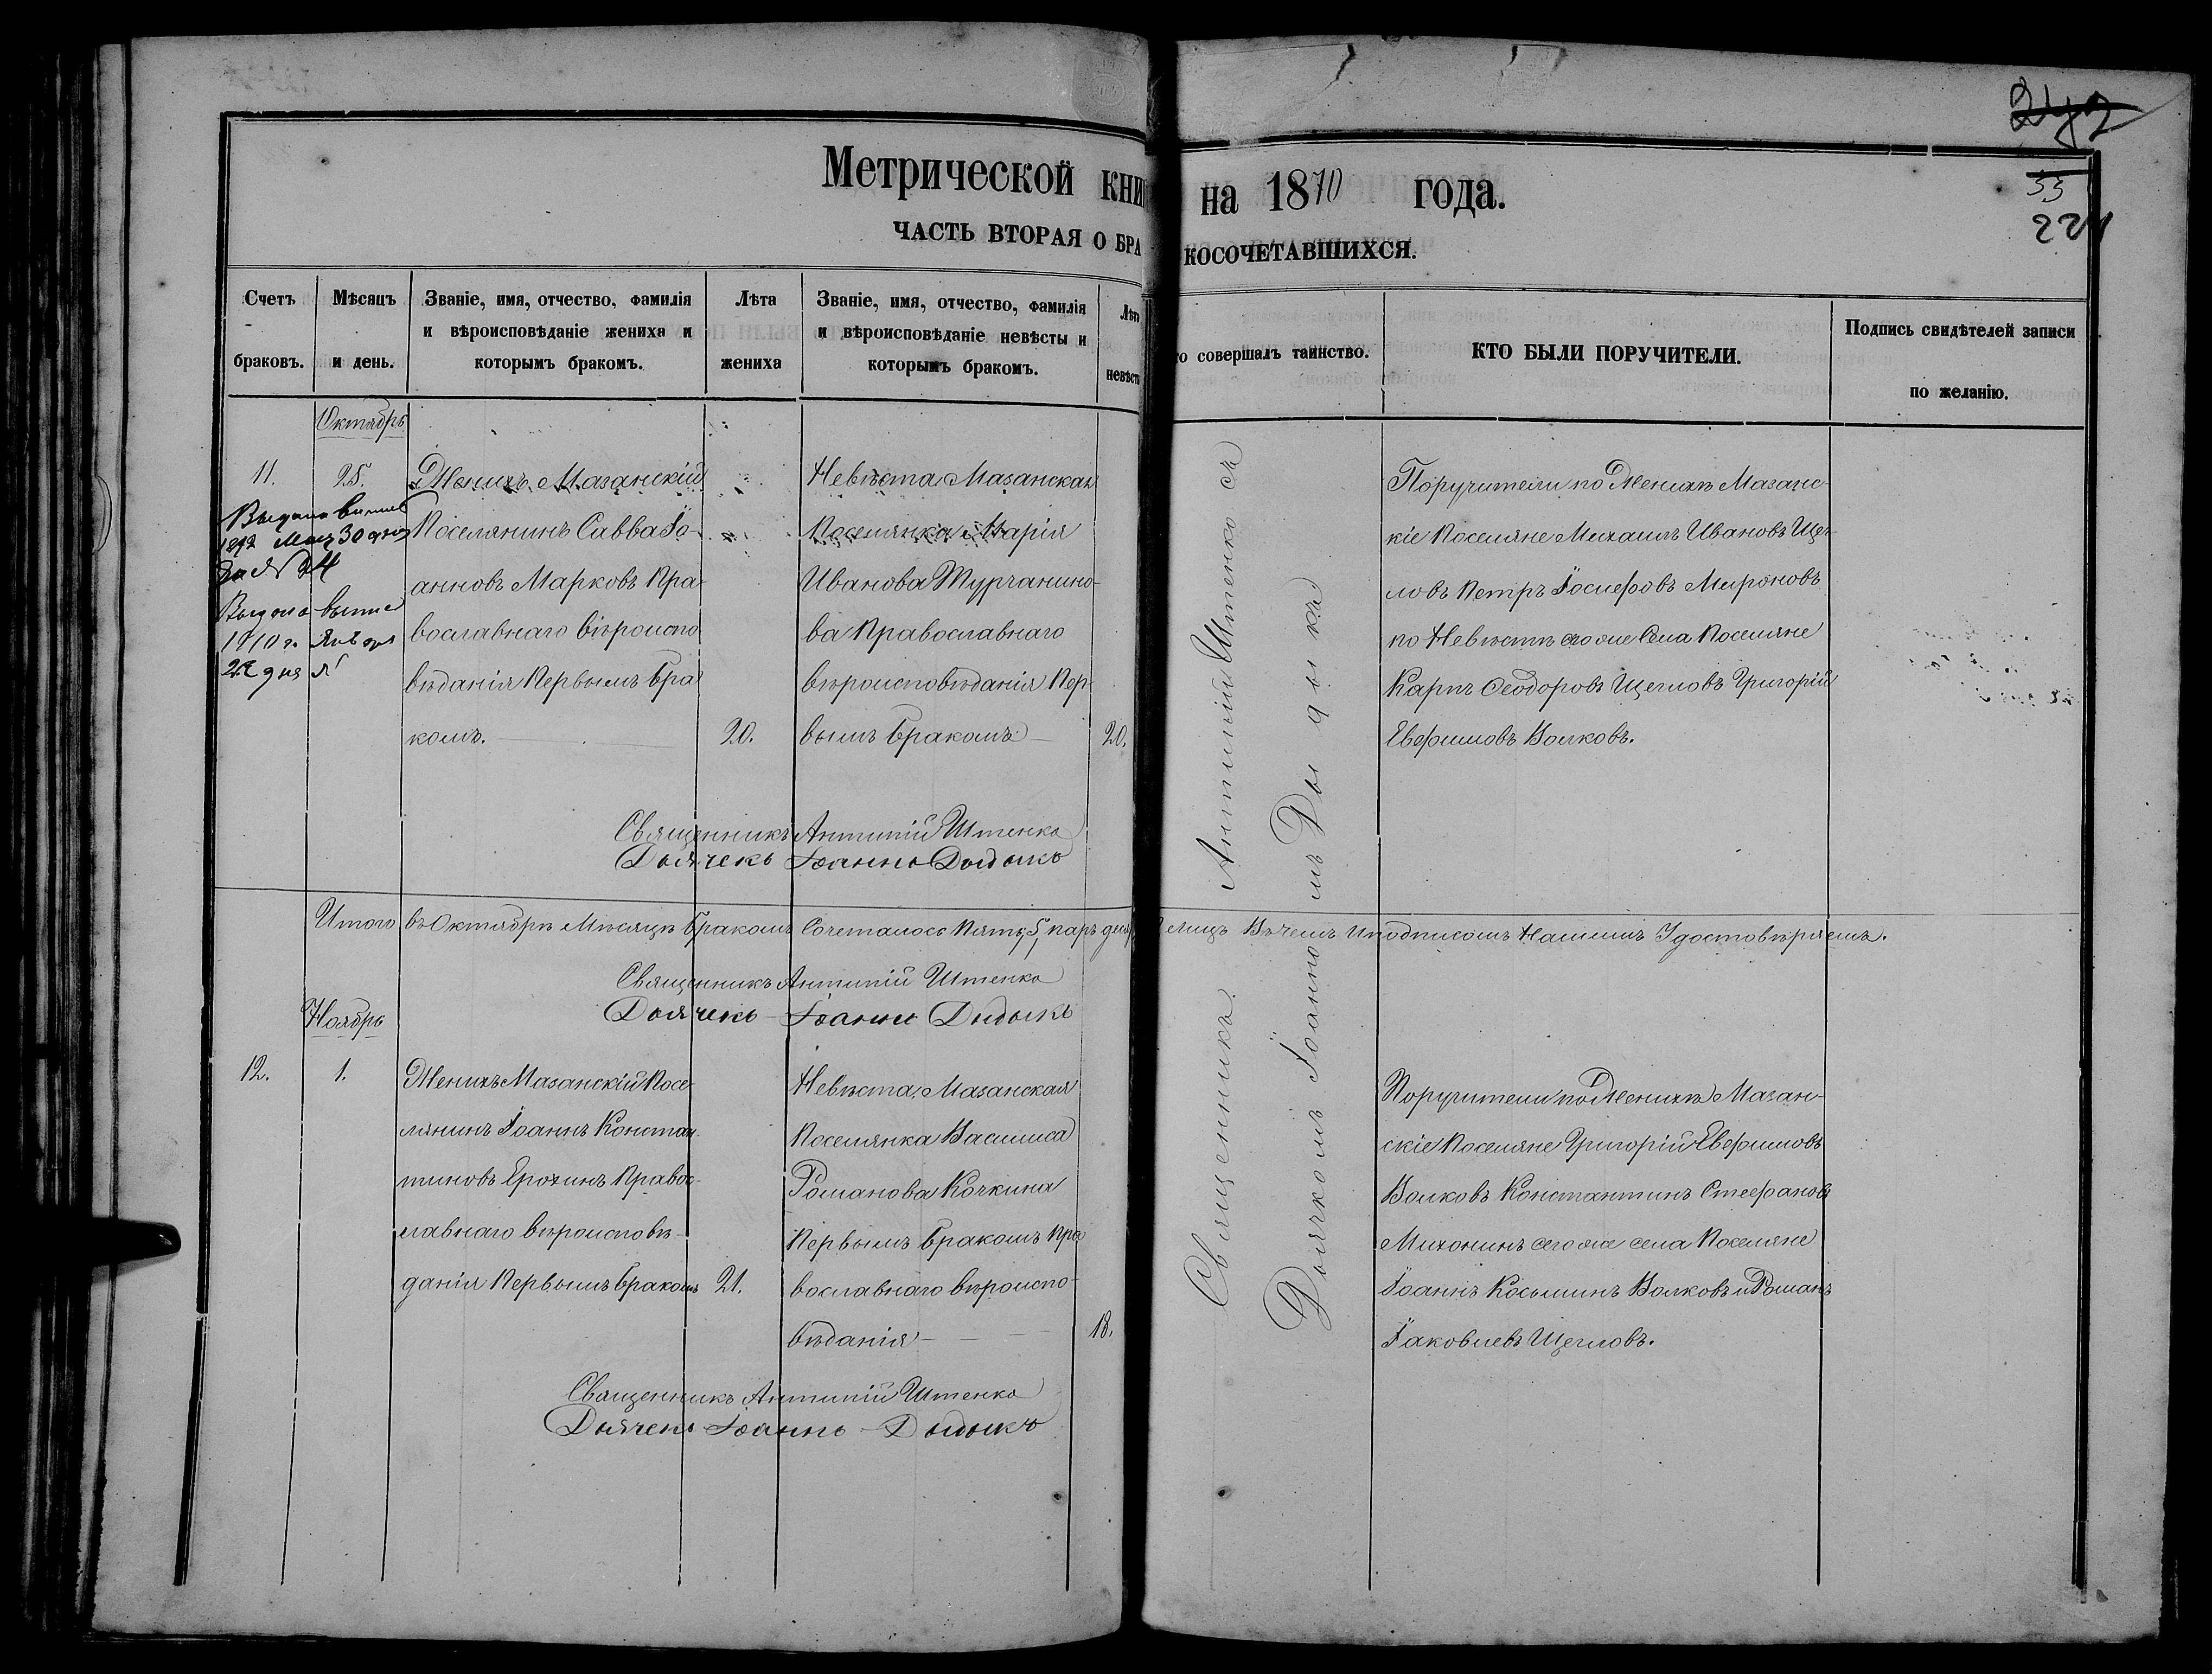 242
53
221
Метрической кни на 1870 года.
ЧАСТЬ ВТОРАЯ О БРА КОСОЧЕТАВШИХСЯ.
Счетъ браковъ.
Мѣсяцъ и день.
Званіе, имя, отчество, фамилія
и вѣроисповѣданіе жениха и
которымъ бракомъ.
Лѣта жениха
Званіе, имя, отчество, фамилія
и вѣроисповѣданіе невѣсты и
которымъ бракомъ.
Лѣта невѣсты
го совершалъ таинство.
КТО БЫЛИ ПОРУЧИТЕЛИ.
Подпись свидѣтелей записи
по желанію.
Октябрь
11.
25.
Женихъ Мазанскій
Поселянинъ Савва Іо-
анновъ Марковъ Пра-
вославнаго віроиспо
вѣданія Первымъ бра
комъ.
20.
Невѣста Мазанская
Поселянка Марія
Иванова Турчанино-
ва Православнаго
вѣроисповѣданія Пер-
вымъ бракомъ
20.
30 дня
За № 24
1910 г. Января
22 дня №
Священникъ Антипій Штенко съ
Дьячкомъ Іоанномъ Дыдыка
Поручители по Женихѣ Мазанс-
кіе Поселяне Михаилъ Ивановъ Щег-
ловъ Петръ Іосифовъ Мироновъ
по Невѣстѣ сегоже Села Поселяне
Карпъ Ѳеодоровъ Щегловъ Григорій
Евѳимовъ Волковъ.
Священникъ Антипій Штенко
Дьячекъ Іоаннъ Дыдыка
Итого въ Октябрѣ Мѣсяцѣ бракомъ Сочеталось Пять, 5, паръ лицъ Въ чемъ и подписомъ Нашимъ Удостовѣряемъ.
Священникъ Антипій Штенко
Дьячекъ Іоаннъ Дыдыка
Ноябрь
12.
1.
Женихъ Мазанскій Посе-
лянинъ Іоаннъ Констан
тиновъ Ерохинъ Правос-
лавнаго вѣроисповѣ-
данія Первымъ бракомъ
21.
Невѣста Мазанская
Поселянка Василиса
Романова Кочкина
Первымъ бракомъ Пра
вославнаго вѣроиспо-
вѣданія
18.
Поручители по Женихѣ Мазан-
скіе Поселяне Григорій Евѳимовъ
Волковъ Константинъ Стефановъ
Михонинъ сегоже села Поселяне
Іоаннъ Косьминъ Волковъ и Романъ
Іаковлевъ Щегловъ.
Священникъ Антипій Штенко
Дьячекъ Іоаннъ Дыдыка